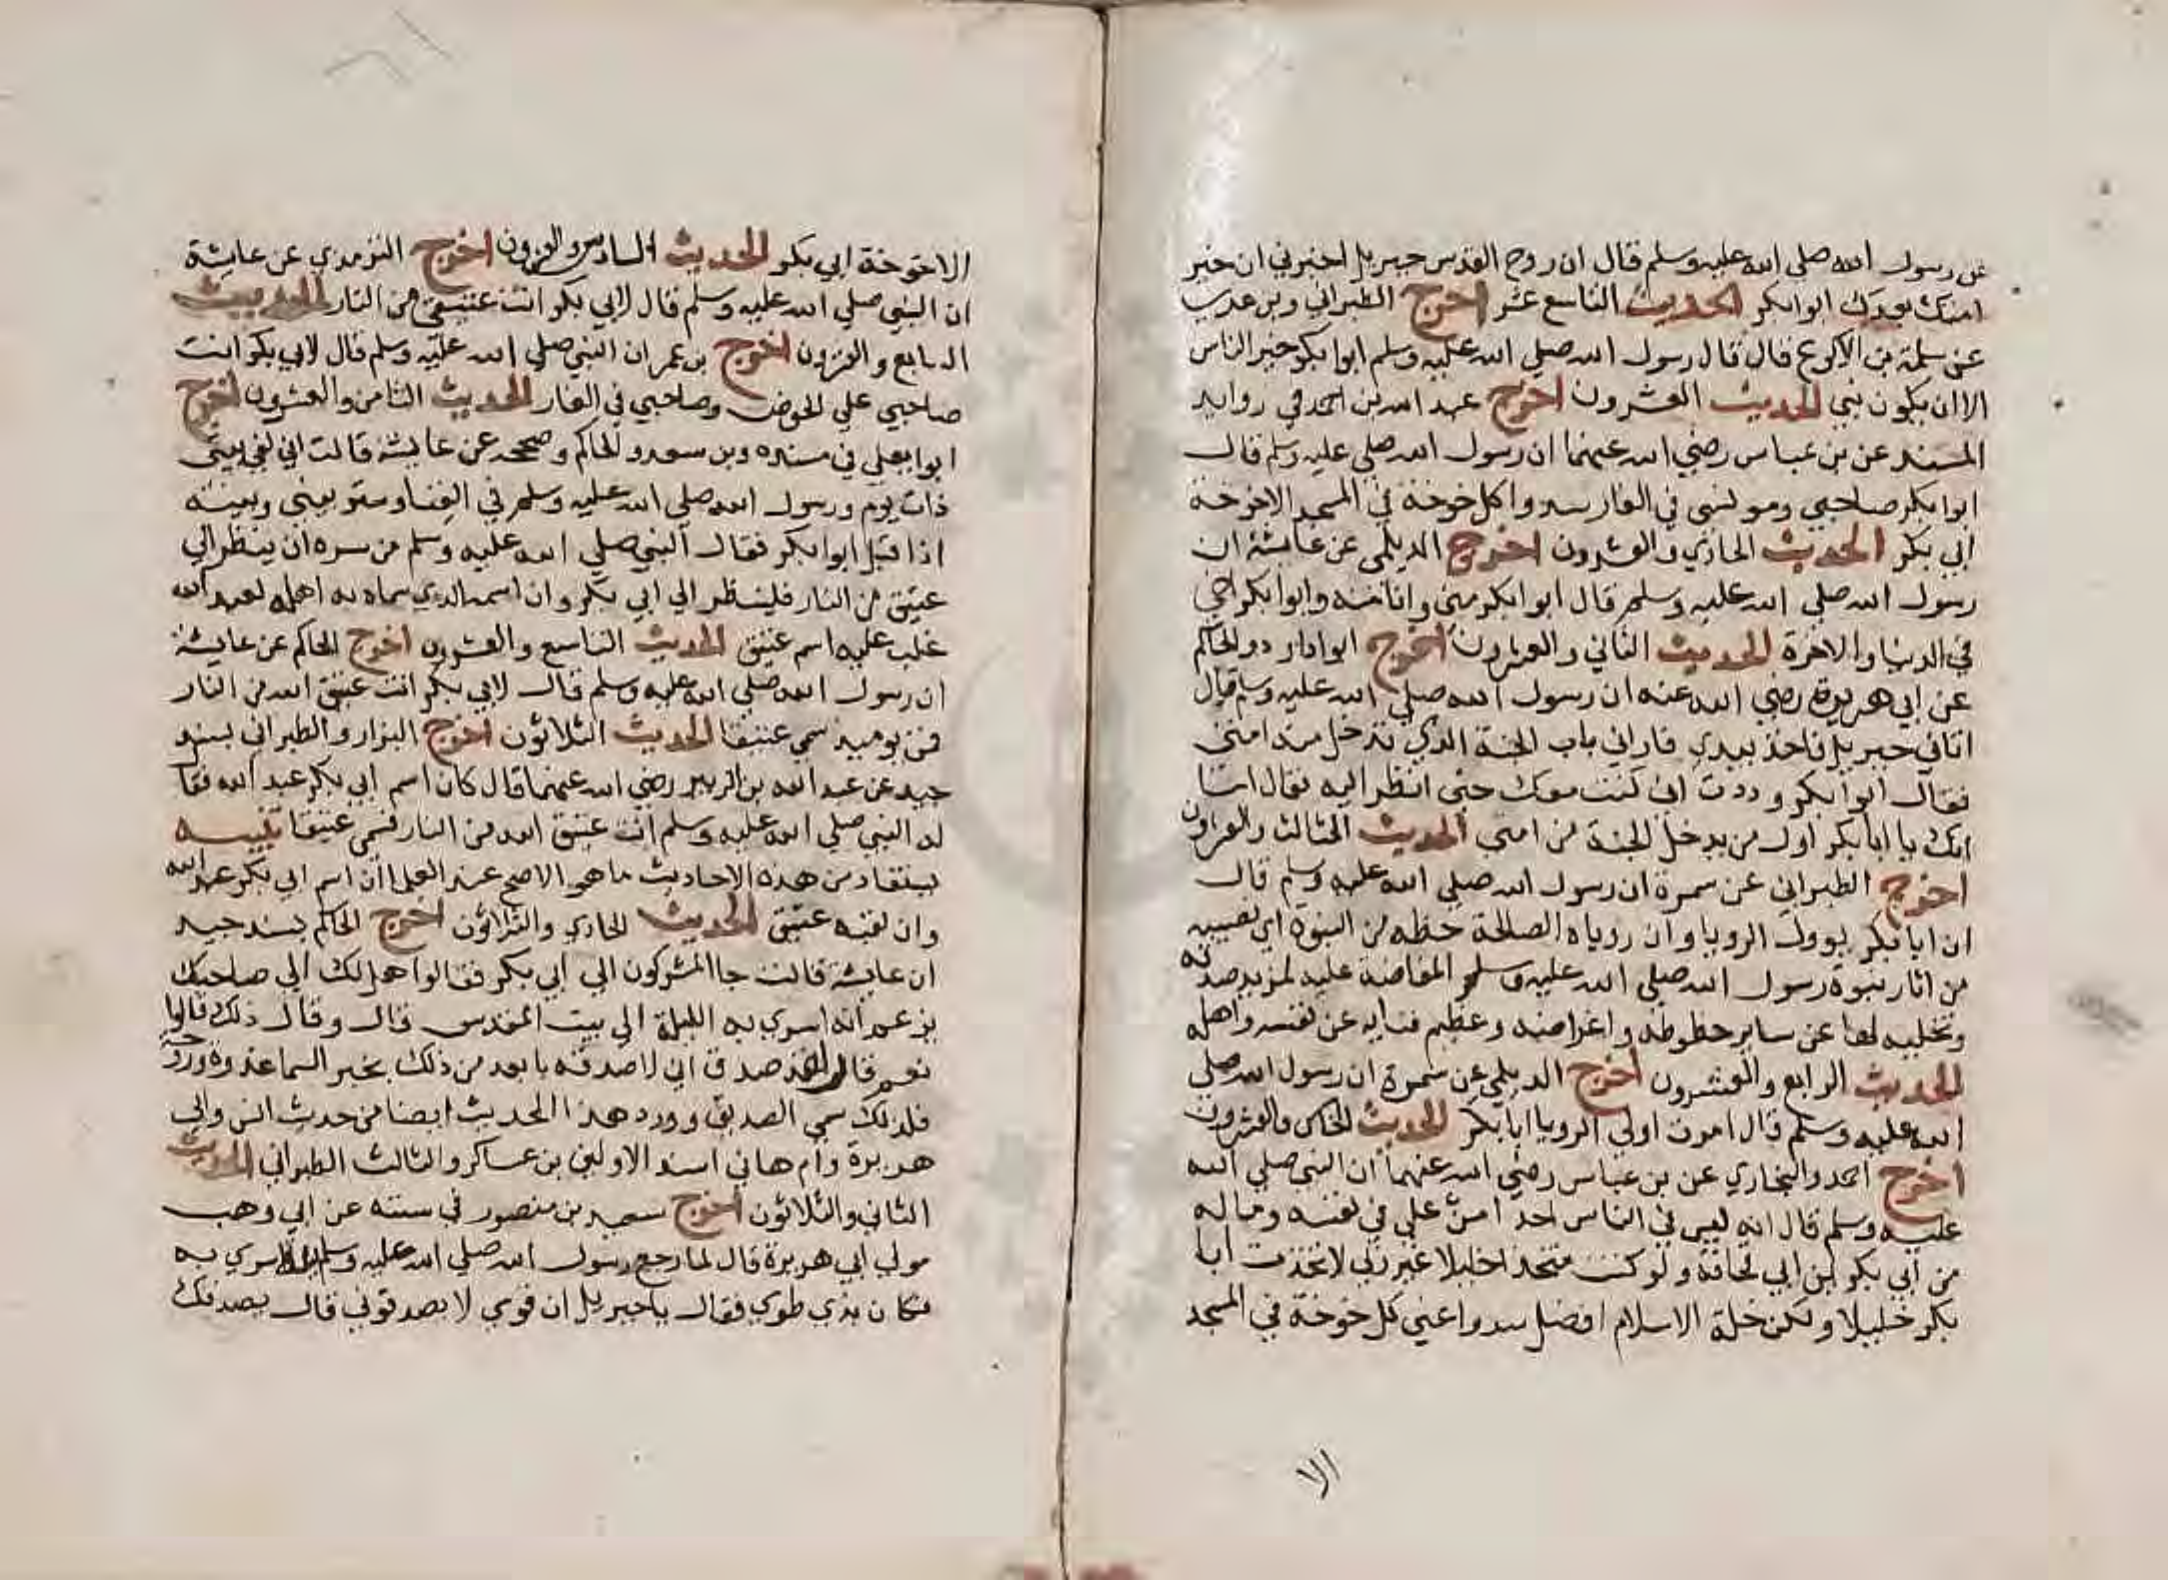 عن رسول الله صلي الله عليه وسلم قال ان روح القدس جبريل اخبرني ان خير
امتك بعدك ابوا بكر الحديث التاسع عشر اخرج الطبراني وبن عدي
عن سلمة بن الاكوع قال قال رسول الله صلي الله عليه وسلم ابوا بكر خير الناس
الا ان يكون نبي الحديث العشرون اخرج عبد الله بن احمد في روايد
المسند عن بن عباس رضي الله عنهما ان رسول الله صلي عليه وسلم قال
ابوا بكر صاحبي ومونسي في الغار سدوا كل خوخة في المسجد الاخوخة
ابي بكر الحديث الحاذي والعشرون اخرج الديلمي عن عايشة ان
رسول الله صلي الله عليه وسلم قال ابوا بكر مني وانا منه وابوا بكر اخي
في الدنيا والاخرة الحديث الثاني والعشرون اخرج ابوا داود والحاكم
عن ابي هريرة رضي الله عنه ان رسول الله صلي الله عليه وسلم قال
اتاني جبريل فاخذ بيدي فاراني باب الجنة الذي تدخل منه امتي
فقال ابوا بكر وددت اني كنت معك حتي انظر اليه فقال اما
انك يا ابا بكر اول من يدخل الجنة من امتي الحديث الثالث والعشرون
اخرج الطبراني عن سمرة ان رسول الله صلي الله عليه وسلم قال
ان ابا بكر يوول الرويا وان روياه الصالحة حظه من النبوة اي نصيبه
من اثار نبوة رسول الله صلي الله عليه وسلم المفاضة عليه لمزيد صدقه
وتخليه لها عن ساير حظوظه واغراضه وعظيم فنايه عن نفسه واهله
الحديث الرابع والعشرون اخرج الديلمي عن سمرة ان رسول الله صلي
الله عليه وسلم قال امرت اولي الرويا ابا بكر الحديث الخامس والعشرون
اخرج احمد والبخاري عن بن عباس رضي الله عنهما ان النبي صلي الله
عليه وسلم قال انه ليس في الناس احد امن علي في نفسه وماله
من ابي بكر ابن ابي قحافة ولو كنت متخذا خليلا غير ربي لاتخذت ابا
بكر خليلا ولكن خلة الاسلام افضل سدوا عني كل خوخة في المسجد
الا
الاخوخة ابي بكر الحديث السادس والعشرون اخرج الترمدي عن عايشة
ان النبي صلي الله عليه وسلم قال لابي بكر انت عتيقي من النار الحديث
السابع والعشرون اخرج بن عمر ان النبي صلي الله عليه وسلم قال لابي بكر انت
صاحبي علي الحوض وصاحبي في الغار الحديث الثامن والعشرون اخرج
ابوا يعلي في مسنده وبن سعد والحاكم وصححه عن عايشة قالت اني لفي بيتي
ذات يوم ورسول الله صلي الله عليه وسلم في الفنا وستر بيني وبينه
اذا قبل ابوا بكر فقال النبي صلي الله عليه وسلم من سره ان ينظر الي
عتيق من النار فلينظر الي ابي بكر وان اسمه الذي سماه به اهله لعبد الله
غلب عليه اسم عتيق الحديث التاسع والعشرون اخرج الحاكم عن عايشة
ان رسول الله صلي الله عليه وسلم قال لابي بكر انت عتيق الله من النار
فمن يوميذ سمي عتيقا الحديث الثلاثون اخرج البزار والطبراني بسند
جيد عن عبد الله بن الزبير رضي الله عنهما قال كان اسم ابي بكر عبد الله فقا
له النبي صلي الله عليه وسلم انت عتيق الله من النار فسمي عتيقا تنبيه
يستفاد من هذه الاحاديث ما هو الاصح عند العلما ان اسم ابي بكر عبد الله
وان لقبه عتيق الحديث الحادي والثلاثون اخرج الحاكم بسند جيد
ان عايشة قالت جا المشركون الي ابي بكر فقالوا هل لك الي صاحبك
يزعم انه اسري به الليلة الي بيت المقدس قال وقال ذلك قالوا
نعم فقال لقد صدق اني لاصدقه بابعد من ذلك بخبر السما غدوة وروحة
فلذلك سمي الصديق وورد هذا الحديث ايضا من حديث انس وابي
هريرة وام هاني اسند الاولين بن عساكر والثالث الطبراني الحديث
الثاني والثلاثون اخرج سعيد بن منصور في سننه عن ابي وهب
مولي ابي هريرة قال لما رجع رسول الله صلي الله عليه وسلم ليلة اسري به
فكان بذي طوي فقال يا جبريل ان قومي لا يصدقوني قال يصدقك